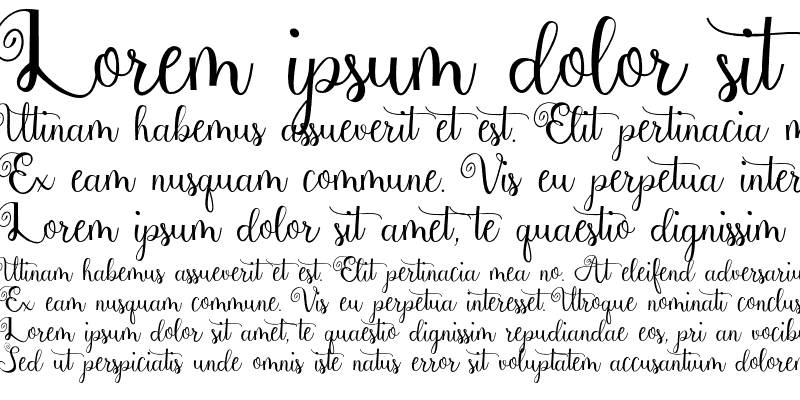 Lorem ipsum dolor sit
Utinam habemus assueverit et est. Elit pertinacia m
Ex eam nusquam commune. Vis eu perpetua inter
Lorem ipsum dolor sit amet, te quaestio dignissim
Utinam habemus assueverit et est. Elit pertinacia mea no. At eleifend adversariu
Ex eam nusquam commune. Vis eu perpetua interesset. Utroque nominati conclus
Lorem ipsum dolor sit amet, te quaestio dignissim repudiandae eos, pri an vocib
Sed ut perspiciatis unde omnis iste natus error sit voluptatem accusantium dolorem